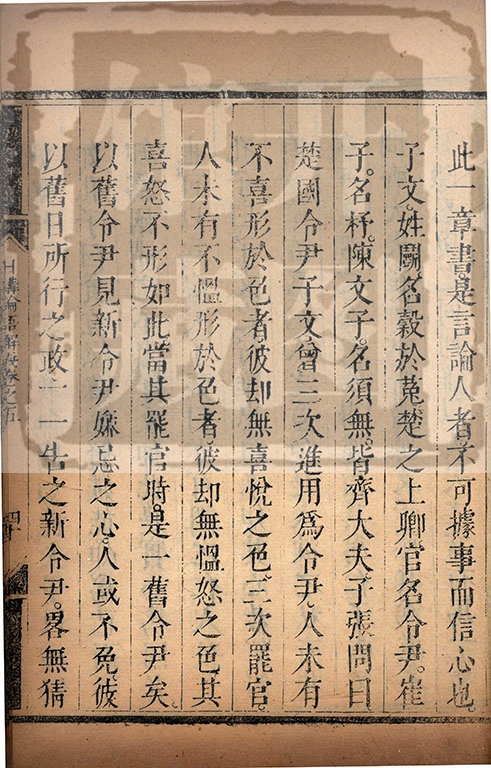 此一章書。是言論人者不可據事而信心也。
子文。姓鬭名穀於菟楚之上卿官名令尹。崔
子。名杼。陳文子。名須無。皆齊大夫子張問曰
楚國令尹子文曾三次進用為令尹人未有
不喜形於色者。彼却無喜悅之色。三次罷官。
人未有不慍形於色者。彼却無慍怒之色。其
喜怒不形如此。當其罷官時。是一舊令尹矣。
以舊令尹見新令尹嫌忌之心。人或不免。彼
以舊日所行之政一一告之新令尹。畧無猜
日講論語解義卷之五